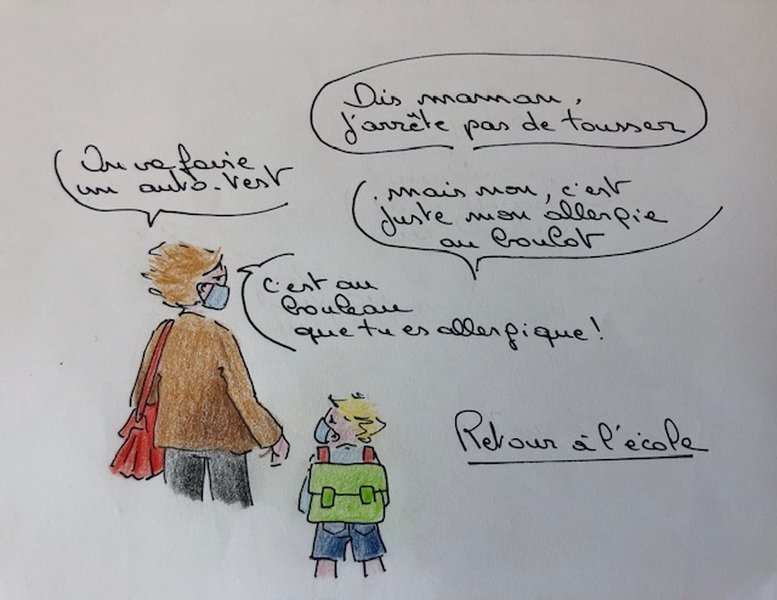 Dis maman,
j'arrête pas de tousser
On va faire
un auto-test
mais non, c'est
juste mon allergie
au boulot
c'est au
bouleau
que tu es allergique !
Retour à l'école